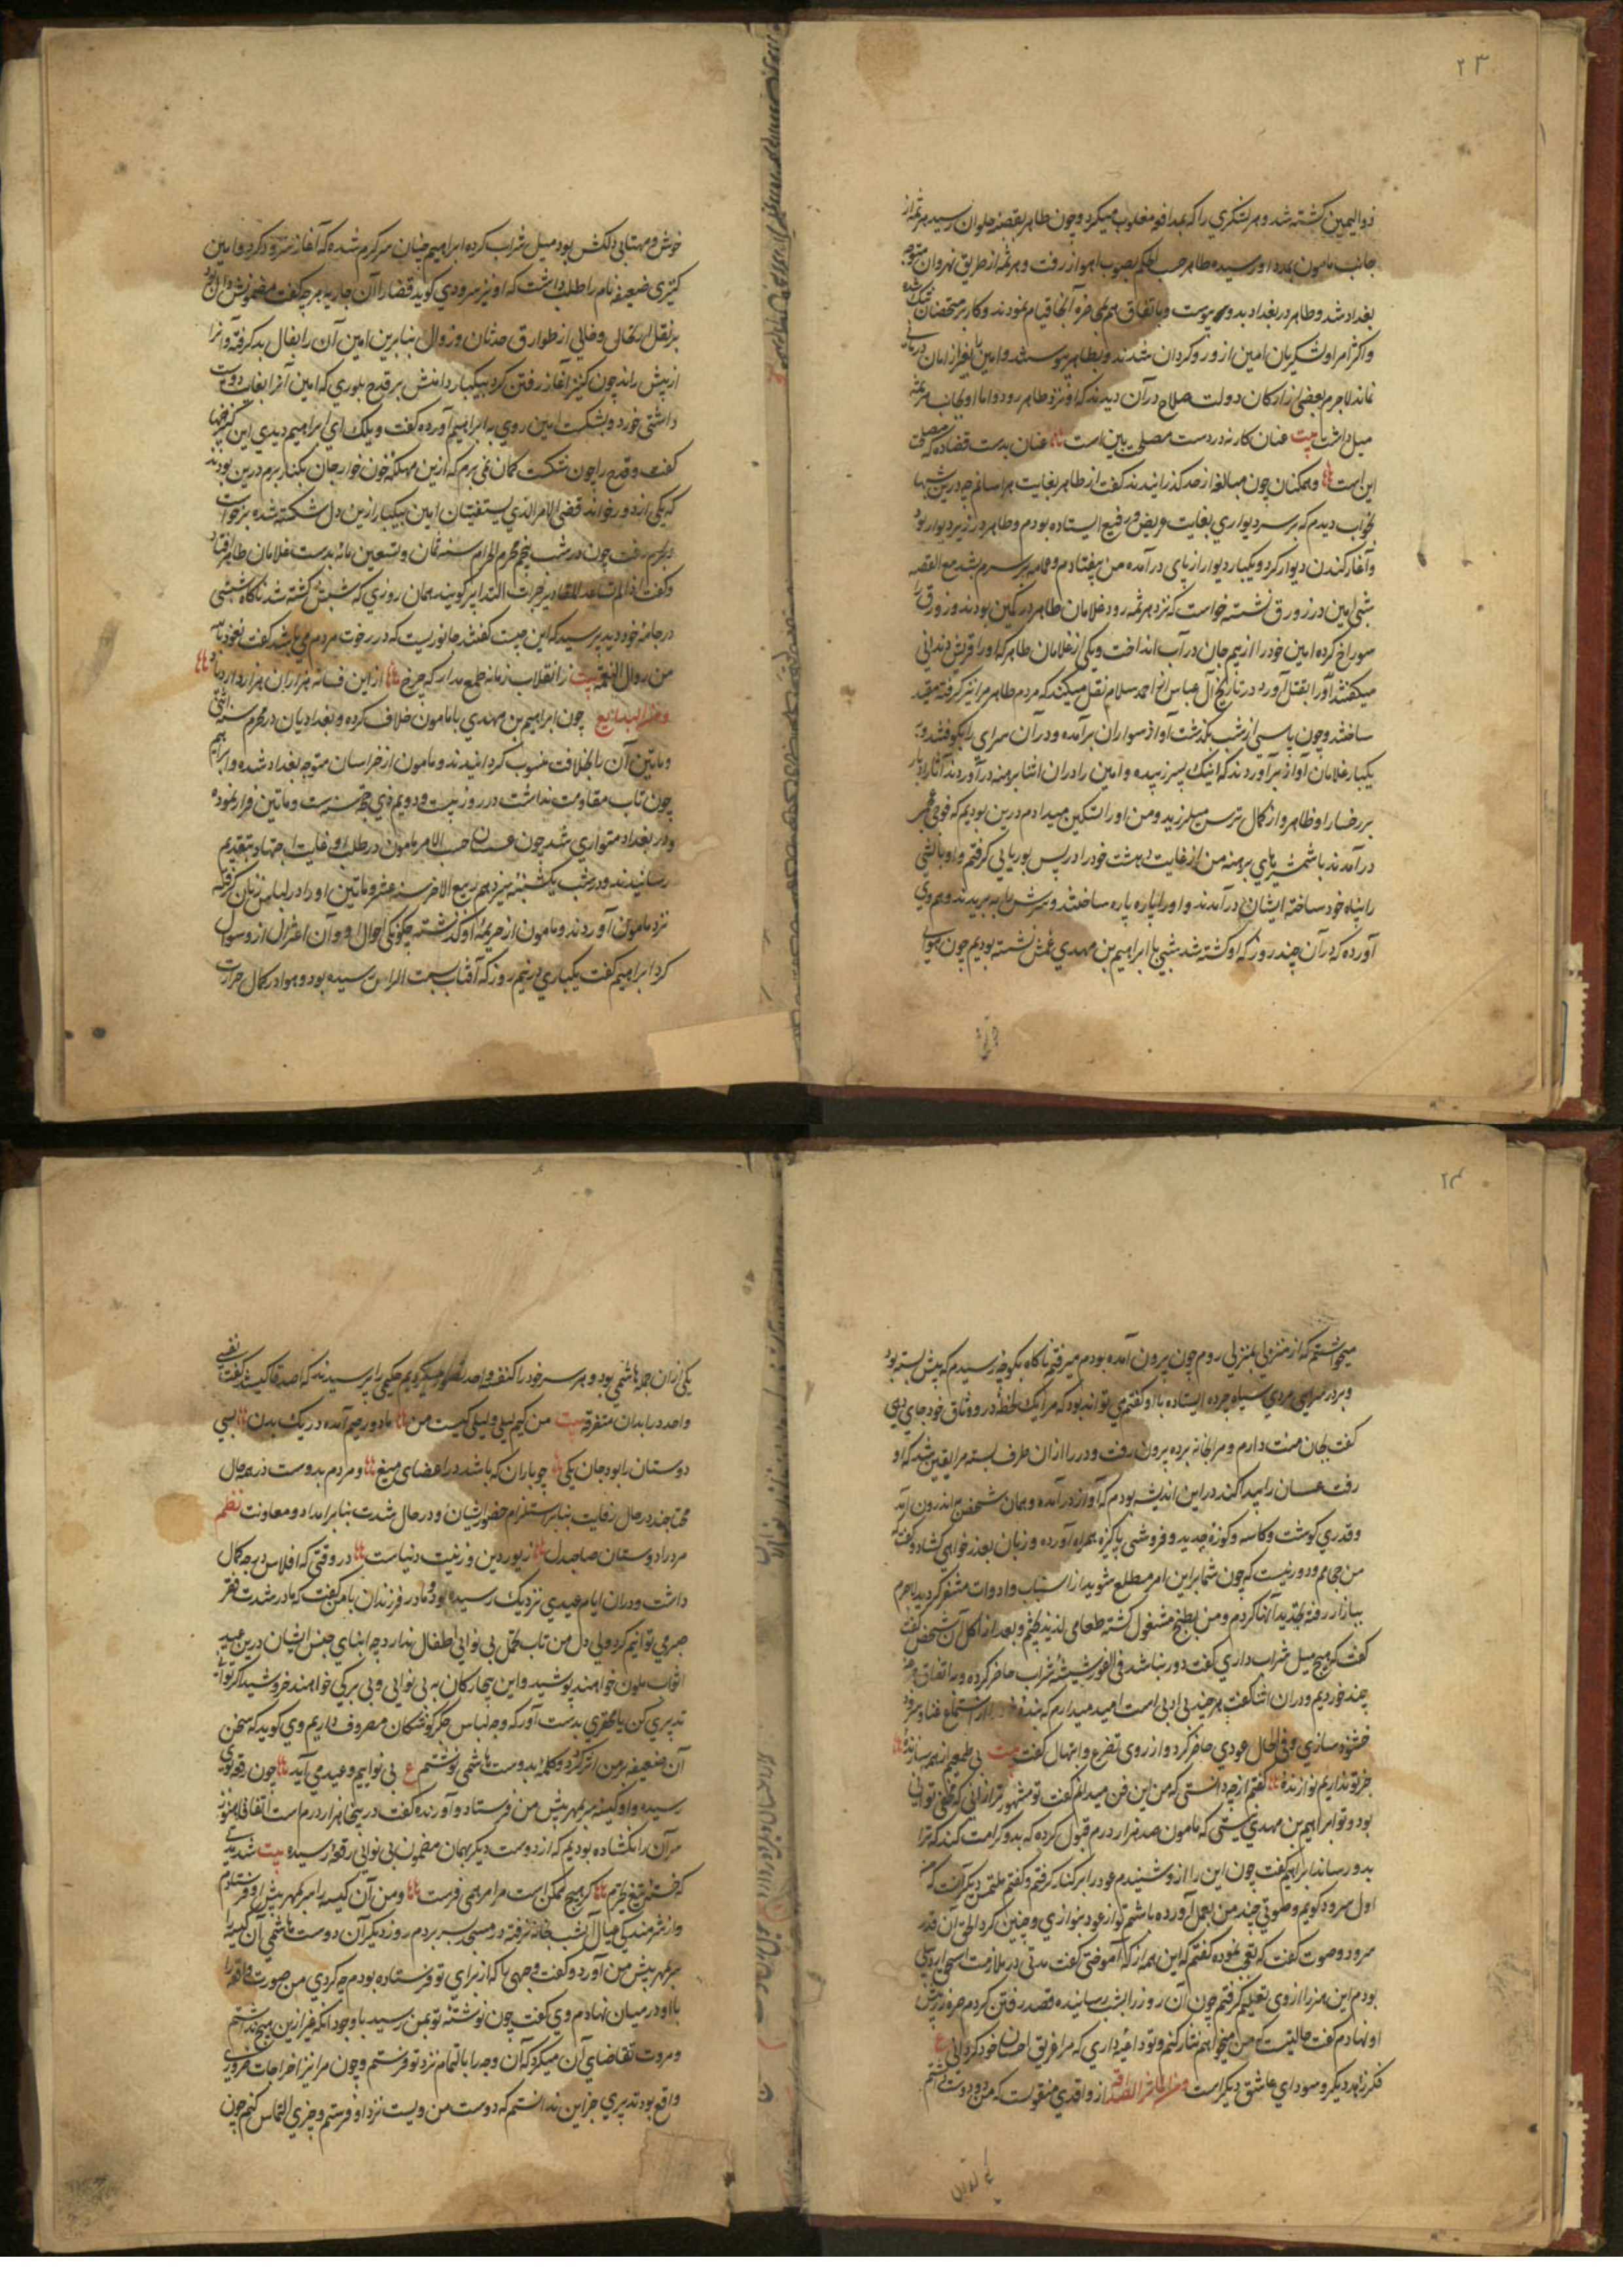 ۲۳
ذو الیمین کشته شد و هر لشکری را که بمدافعه مغلوب میکرد و چون طاهر بقصبۀ حلوان رسید هرثمه از
جانب مامون بمدد او رسیده طاهر حسب الحکم بصوب اهواز رفت و هرثمه از طریق نهروان متوجه
بغداد شد و طاهر در بغداد بدو پیوست و باتفاق هم بمحاصرۀ آنجا قیام نمودند و کار بر متحصنان تنک شده
و اکثر امرا و لشکریان امین ازو روکردان شدند و بطاهر پیوستند و امین را بغیر از امان درمانی
نماند لاجرم بعضی از ارکان دولت صلاح در آن دیدند که او نزد طاهر رود و اما او بجانب هرثمه
میل داشت بیت عنان کار نه در دست مصلحت بین است عنان بدست قضا ده که مصلحت
این است و همکنان چون مبالغه از حد کذرانیدند کفت از طاهر بغایت هراسانم چه درین شبها
بخواب دیدم که بر سر دیواری بغایت عریض و رفیع ایستاده بودم و طاهر در زیر دیوار بود
و آغاز کندن دیوار کرد و یکبار دیوار از پای در آمده من بیفتادم و عمامه از سرم بشد مع القصه
شبی امین در زورق نشسته خواست که نزد هرثمه رود غلامان طاهر در کمین بودند و زورق را
سوراخ کرده امین خود را از بیم جان در آب انداخت و یکی از غلامان طاهر که او را قریش دندانی
میکفتند او را بقتل آورد در تاریخ آل عباس از احمد سلام نقل میکنند که مردم طاهر مرا نیز کرفته مقید
ساختند و چون پاسی از شب بکذشت آواز سواران برآمده و در آن سرای را بکوفتند و
یکبار غلامان آواز برآوردند که اینک پسر زبیده و امین را در آن اثنا برهنه در آوردند آثار ادبار
بر رخسار او ظاهر و از کمال ترس میلرزید و من او را تسکین میدادم درین بودیم که فوجی عجم
در آمدند با شمشیرهای برهنه من از غایت دهشت خود را در پس بوریایی کرفتم و او بالشی
را پناه خود ساخته ایشان در آمدند و او را پاره پاره ساختند و سرش را ببریدند و هم وی
آورده که در آن چند روز که او کشته شد شبی با ابراهیم بن مهدی عمش نشسته بودیم چون هوای
خوش و مهتابی دلکش بود میل شراب کرده ابراهیم چنان سرکرم شده که آغاز سرود کرد و امین
کنیزی ضعیفه نام را طلب داشت که او نیز سرودی کوید قضا را آن جاریه هر چه کفت مضمونش دال بود
بر نقل و ارتحال و خالی از طوارق حدثان و زوال بنابرین امین آن را بفال بد کرفته و او را
از پیش راند چون کنیز آغاز رفتن کرد بیکبار دامنش بر قدح بلوری که امین آنرا بغایت دوست
داشتی خورد و بشکست امین روی با ابراهیم آورده کفت ویلک ای ابراهیم دیدی این کنیز چها
کفت و قدح را چون شکست کمان نمی برم که ازین مهلکۀ خون خوار جان بکنار برم درین بودند
که یکی از دور خواند قضی الامر الذی تستفتیان امین بیکبار ازین دل شکسته شده برخواست
و بحرم رفت چون در شب پنجم محرم الحرام سنه ثمان و تسعین مائه بدست غلامان طاهر افتاد
و کفت اذا لم تساعد المقادیر جرات التدابیر کویند همان روزی که شبش کشته شد ناکاه شپشی
در جامۀ خود دید پرسید که این چیست کفتند جانوریست که در رخوت مردم می باشد کفت نعوذ بالله
من زوال النعمه بیت ز انقلاب زمانه طمع مدار که چرخ ازین فسانه هزاران هزار دارد یاد
و من البدایع چون ابراهیم بن مهدی با مامون خلاف کرده و بغدادیان در محرم سنه اثنی
و ماتین آن را بخلافت منسوب کردانیدند و مامون از خراسان متوجه بغداد شده و ابراهیم
چون تاب مقاومت نداشت در روز بیست و دویم ذی حجه سنه ست و ماتین فرار نموده
و در بغداد متواری شد چون عسسان حسب الامر مامون در طلب او غایت اجتهاد بتقدیم
رسانیدند و در شب یکشنبه سیزدهم ربیع الاخر سنه عشر و ماتین او را در لباس زنان کرفته
نزد مامون آوردند و مامون از جریمۀ او کذشته چکونکی احوال او در آن اعتزال ازو سوال
کرد ابراهیم کفت یکباری در نیم روز که آفتاب بسمت الراس رسیده بود و هوا در کمال حرارت
۲۴
میخواستم که از منزلی بمنزلی روم چون بیرون آمده بودم میرفتم ناکاه بکوچه رسیدم که پیش بسته بود
و بر در سرایی مردی سیاه چرده ایستاده با او کفتم می تواند بود که مرا یک لحظه در وثاق خود جای دهی
کفت بجان منت دارم و مرا بخانه برده بیرون رفت و در را از آن طرف بسته مرا یقین شد که او
رفت عسسان را پیدا کند در این اندیشه بودم که آواز در آمده و همان شخص باندرون آمد
و قدری کوشت و کاسه و کوزۀ جدید و فروشی پاکیزه همراه آورده و زبان بعذر خواهی کشاد و کفت که
من حجامم و دور نیست که چون شما براین امر مطلع شوید از اسباب و ادوات متنفر کردید لاجرم
ببازار رفته تجدید آنها کردم و من بطبخ مشغول کشته طعامی لذیذ پختم و بعد از اکل آن شخص کفت
کفت که هیچ میل شراب داری کفتم دور نباشد فی الفور شیشۀ شراب حاضر کرده و باتفاق
چند خوردیم و در آن اثنا کفت هر چند بی ادبی است امید میدارم که بنده را از استماع غنا و سرود
خشنود سازی و فی الحال عودی حاضر کرد و از روی تضرع و ابتهال کفت بیت بی طمعیم از همه سازنده
جز تو نداریم نوازنده کفتم از چه دانستی که من این فن میدانم کفت تو مشهورتر از آنی که مخفی توانی
بود و تو ابراهیم بن مهدی نیستی که مامون صد هزار درم قبول کرده که بدو کرامت کند که ترا
بدو رساند ابراهیم کفت چون این را ازو شنیدم عود را بر کنار کرفتم و کفتم ملتمس دیکر آنست که
اول سرود کویم و صوتی چند من بعمل آورده باشم تو از عود بنوازی و چنین کرد الحق آن قدر
سرود و صوت کفت که تعجب نموده کفتم که این همه از که آموختی کفت مدتی در ملازمت اسحق
بودم این هنر را از وی تعلیم کرفتم چون آن روز را بشب رسانیده قصد رفتن کردم صرۀ زر پیش
او نهادم کفت حالتیست که من میخواهم نثار کنم و تو داعیه داری که مرا غریق احسان خود کردانی ع
فکر زاهد دیکر و سودای عاشق دیکر است و من المآثر الصداقه از واقدی منقولست که من دو دوست داشتم
یکی از آن جمله هاشمی بود و هر سه خود را کنفس واحد تصور میکردیم حکیمی را پرسیدند که اصدقا کیستند کفت نفسی
واحد در ابدان متفرقه بیت من کیم لیلی و لیلی کیست من ما دو روحیم آمده در یک بدن بسی
دوستان را بود جان یکی چو باران که باشد در اعضای میغ و مردم بدوست در همه حال
محتاجند در حال رفاهیت بنابر استلزام حضور ایشان و در حال شدت بنابر امداد و معاونت نظم
مرد را دوستان صاحبدل زیور دین و زینت دنیاست در وقتی که افلاس درجه کمال
داشت و در آن ایام عیدی نزدیک رسیده بود و مادر فرزندان با من کفت که ما در شدت فقر
صبر می توانیم کرد ولی دل من تاب تحمل بی نوایی اطفال ندارد چه ابنای جنس ایشان درین عید
اثواب ملون خواهند پوشید و این بیچارکان به بی نوایی و بی برکی خواهند خروشید اکر توانی
تدبیری کن یا محقری بدست آور که وجه لباس جکرکوشکان مصروف داریم وی کوید که سخن
آن ضعیفه در من اثر کرد و کلمۀ بدوست هاشمی نوشتم ع بی نواییم و عید می آید چون رقعه بوی
رسیده و او کیسۀ سر بمهر پیش من فرستاد و آورنده کفت در اینجا هزار درم است اتفاقا هنوز
سر آن را نکشاده بودیم که از دوست دیکر بهمان مضمون بی نوایی رقعۀ رسیده بیت شنیدی
که خستۀ تیغ هجرتم کر هیچ ممکن است مرا مرهمی فرست و من آن کیسه را سر بمهر پیش او فرستادم
و از شرمندکی عیال آن شب بخانه نرفته در مسجد بسر بردم روز دیکر آن دوست هاشمی آن کیسه را
سر بمهر پیش من آورد و کفت وجهی را که از برای تو فرستاده بودم چه کردی من صورت واقعه را
با او در میان نهادم وی کفت چون نوشتۀ تو بمن رسید با وجود آنکه غیر ازین هیچ نداشتم
و مروت تقاضای آن میکرد که آن وجه را بالتمام نزد تو فرستم و چون مرا نیز اخراجات ضروری
واقع بود تدبیری جز این ندانستم که دوست من و تست نزد او فرستم و چیزی التماس کنم چون